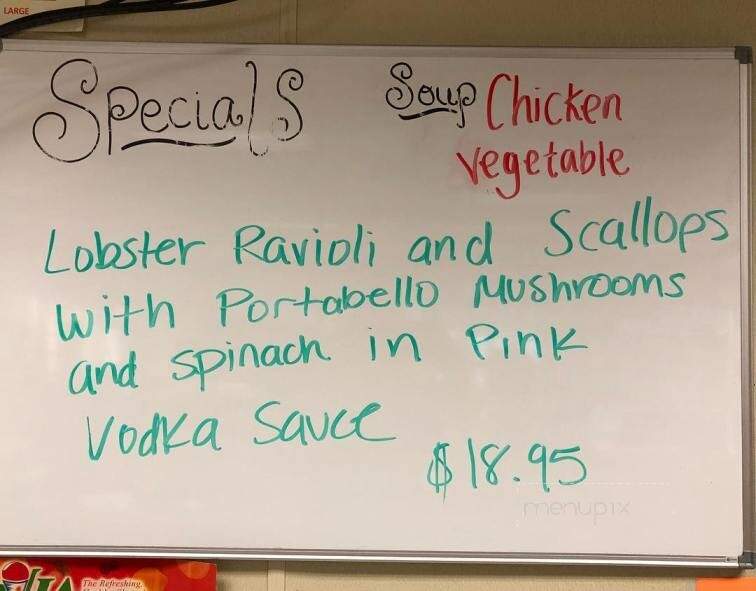 LARGE
Specials
Soup Chicken
vegetable
Lobster Ravioli and Scallops
with Portabello Mushrooms
and spinach in Pink
Vodka Sauce
$18.95
menupix
The Refreshing